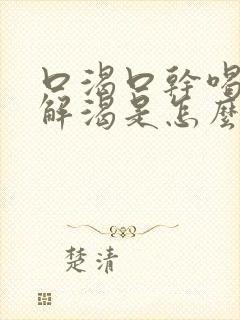 口渴口幹喝
解渴是怎麼
楚清